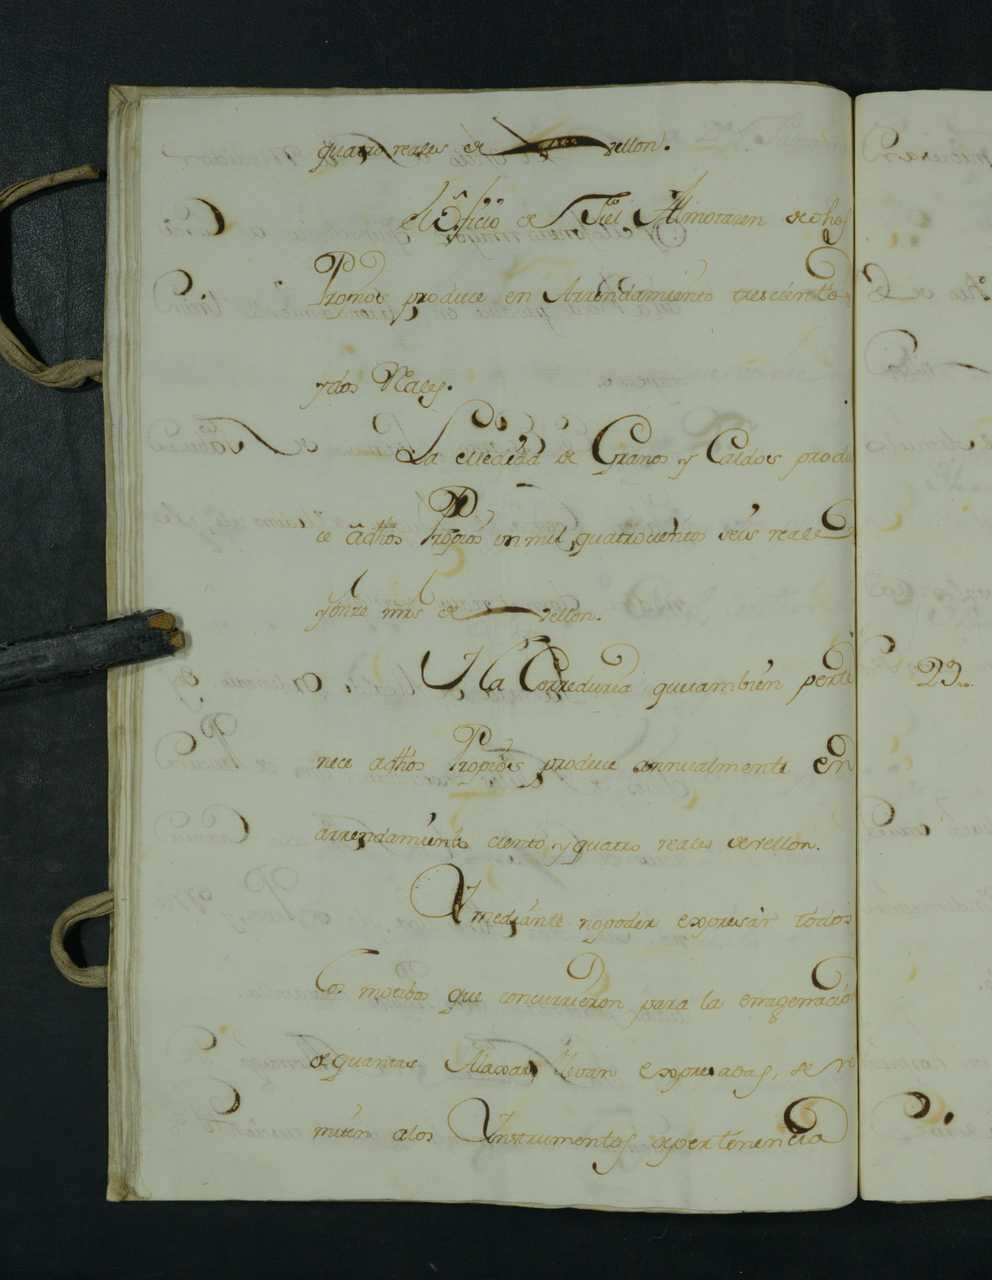 quatro reales de vellon.
el Oficio de Fiel Almotacen de dhos
Promos produce en Arrendamiento trescientto
y dos Rales.
La Medida de Granos y Caldos produ
ce âdhos Propios un mil quatrocientos seis reale
y onze mrs de vellon.
Y la Correduria que tambien perte
nece adhos Propios produce annualmente En
arrendamiento ciento y quatro reales de vellon.
Y mediante no poder expresar todos
Los motibos que concurrieron para la enagenacion
de quantas Alaxas llevan Expresadas, se re
miten a los Ynstrumentos de pertenencia
23..